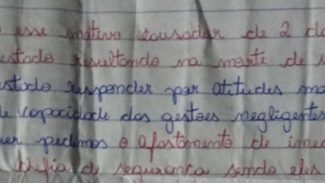 esse motivo causador de 2 d
estado resultando na morte de
estado responder por atitudes ma
de capacidade das gestões negligentes
pedimos o afastamento de imed
de segurança sendo eles